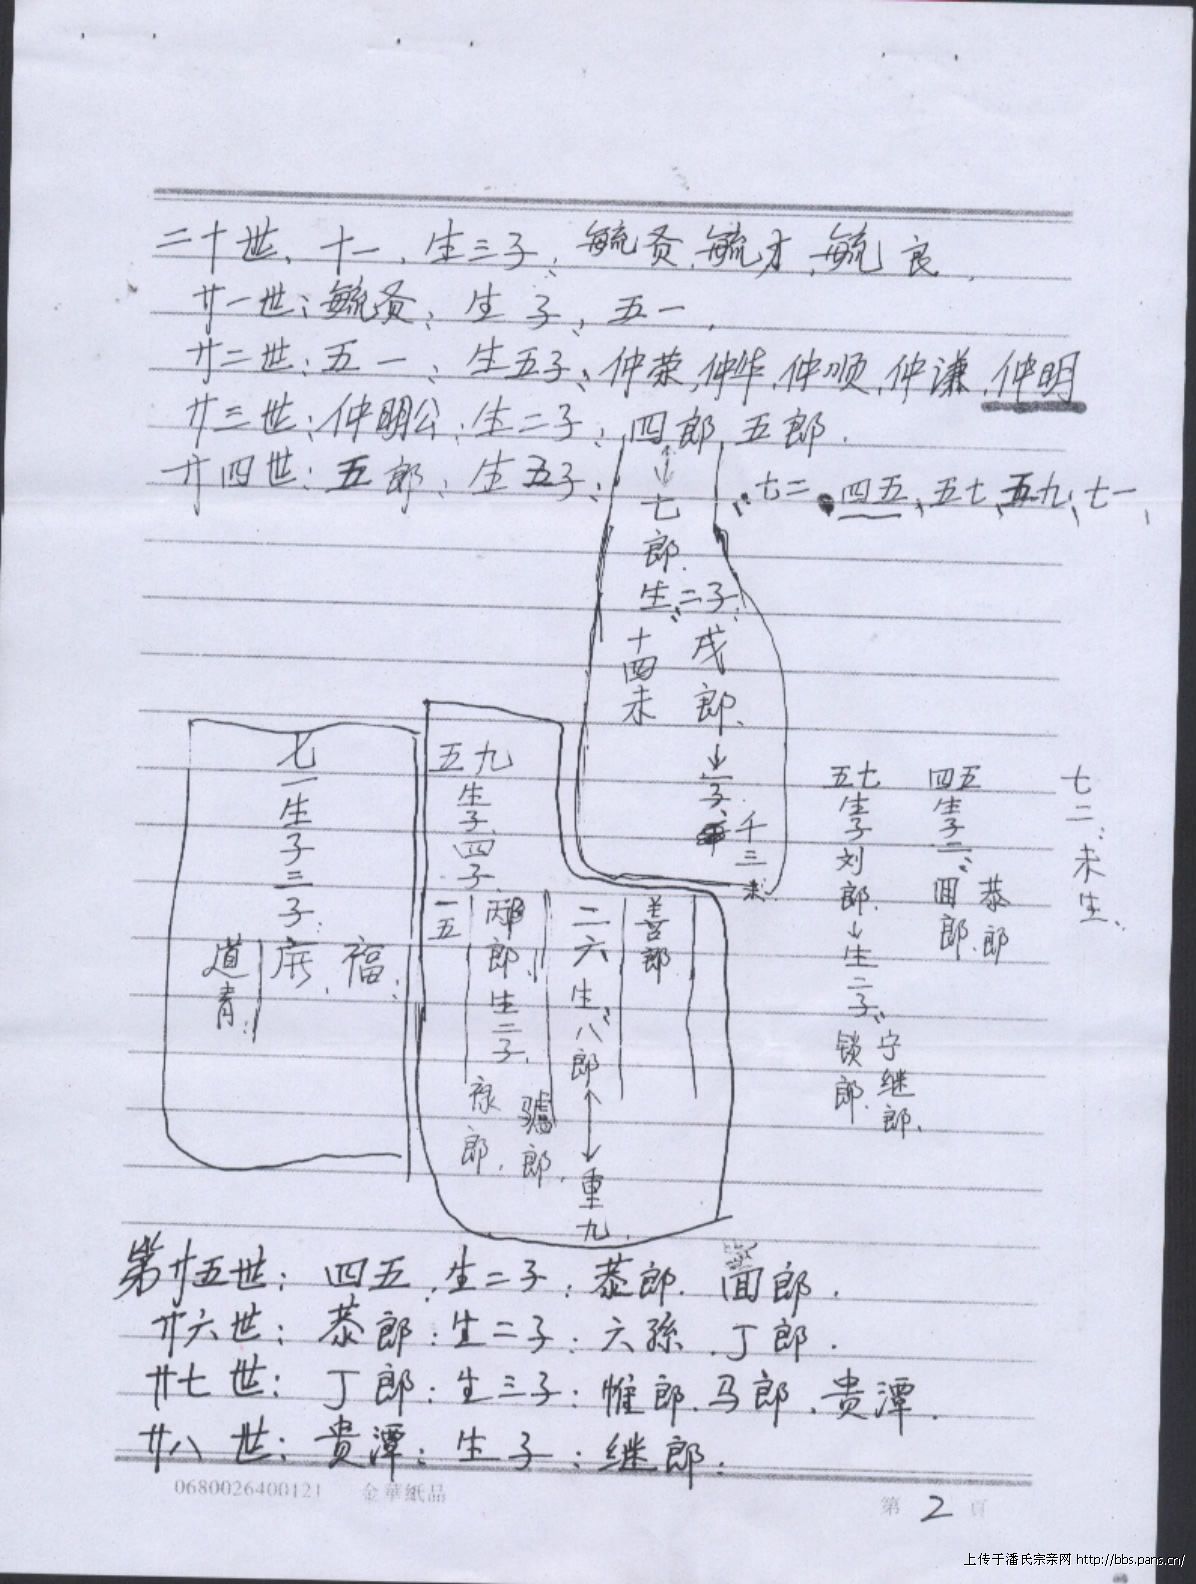 二十世、十一、生三子、毓贤、毓才、毓良、
廿一世：毓贤：生子、五一、
廿二世：五一、生五子：仲荣、仲华、仲顺、仲谦、仲明
廿三世：仲明公：生二子：四郎、五郎.
廿四世：五郎：生五子：七二、四五、五七、五九、七一、
七郎.
生二子:
戌郎、
十四未
↓
子
千三未
七二、未生、
四五
生子二:
恭郎
郎
五七
生子刘郎.↓生二子:
宁继郎.
锁郎.
五九
生子四子
善郎
二六生:八郎
重九
郎、生二子、
驢郎.
禄郎.
一五
七一生子三子.
福:
道青:
第廿五世：四五、生二子：恭郎.郎.
廿六世：恭郎：生二子：六孫.丁郎.
廿七世：丁郎：生三子：惟郎、马郎、贵潭.
廿八世：贵潭：生子：继郎.
0680026400121 金華紙品
第 2 頁
上传于潘氏宗亲网 http://bbs.pans.cn/